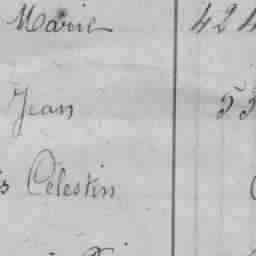 Marie 424
Jean 55
s Célestin